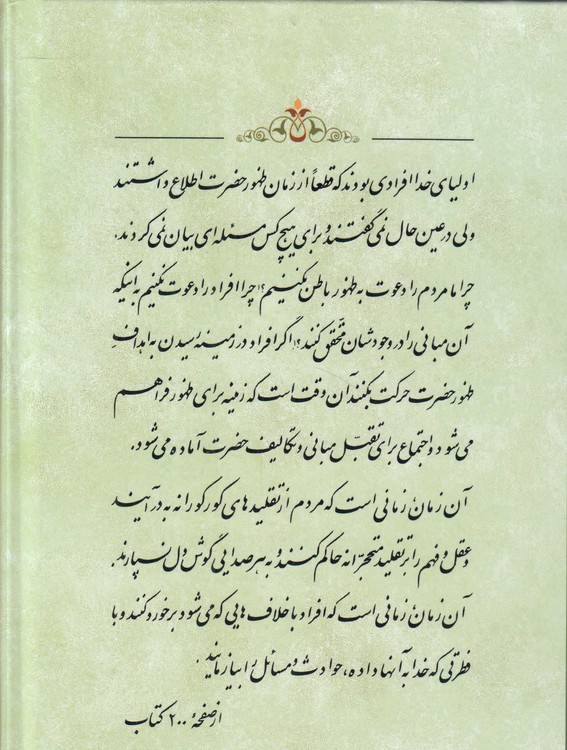 اولیای خدا افرادی بودند که قطعاً از زمان ظهور حضرت اطلاع داشتند
ولی در عین حال نمی‌گفتند و برای هیچ کس مسئله‌ای بیان نمی‌کردند.
چرا ما مردم را دعوت به ظهور باطن نکنیم؟! چرا افراد را دعوت نکنیم به اینکه
آن مبانی را در وجودشان متحقّق کنند؟! اگر افراد در زمینه رسیدن به اهدافِ
ظهور حضرت حرکت بکنند آن وقت است که زمینه برای ظهور فراهم
می‌شود و اجتماع برای تقبّل مبانی و تکالیف حضرت آماده می‌شود.
آن زمان، زمانی است که مردم از تقلیدهای کورکورانه به در آیند
و عقل و فهم را بر تقلید متحجّرانه حاکم کنند و به هر صدایی گوش دل نسپارند.
آن زمان، زمانی است که افراد با خلاف‌هایی که می‌شود برخورد کنند و با
فطرتی که خدا به آنها داده، حوادث و مسائل را بیازمایند.
از صفحهٔ ۲۰۰ کتاب